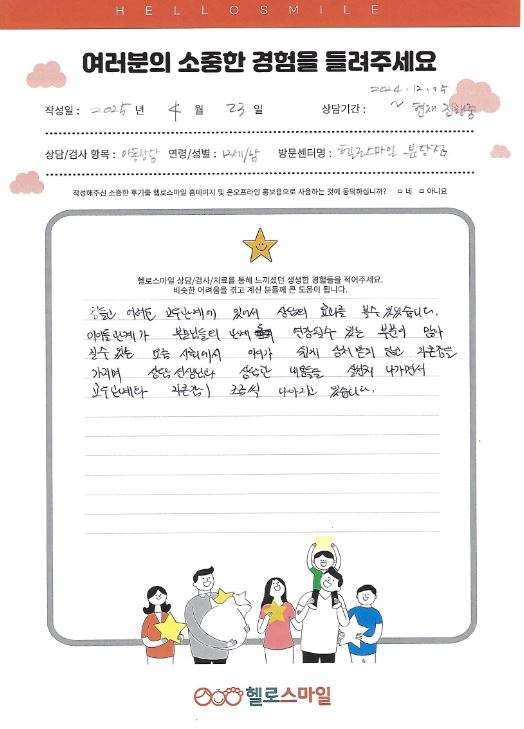 HELLOSMILE
여러분의 소중한 경험을 들려주세요
2024.12.05
작성일 : 2025 년 4 월 23 일 상담기간 : ~ 현재 진행중
상담/검사 항목 : 아동상담 연령/성별 : 12세/남 방문센터명 : 헬로스마일 분당점
작성해주신 소중한 후기를 헬로스마일 홈페이지 및 온오프라인 홍보용으로 사용하는 것에 동의하십니까? ㅁ 네 ㅁ 아니요
헬로스마일 상담/검사/치료를 통해 느끼셨던 생생한 경험들을 적어주세요.
비슷한 어려움을 겪고 계신 분들께 큰 도움이 됩니다.
힘들고 어려운 교우관계에 있어서 상담의 효과를 볼수 있었습니다.
관계가 부모님들의 관계 연장될수 있는 부분이 많아
질수 있는 요즘 사회에서 아이가 쉽게 상처 받기 않고 자존감을
가지며 상담 선생님과 상담한 내용들을 실천해 나가면서
교우관계와 자존감이 조금씩 나아지고 있습니다.
헬로스마일